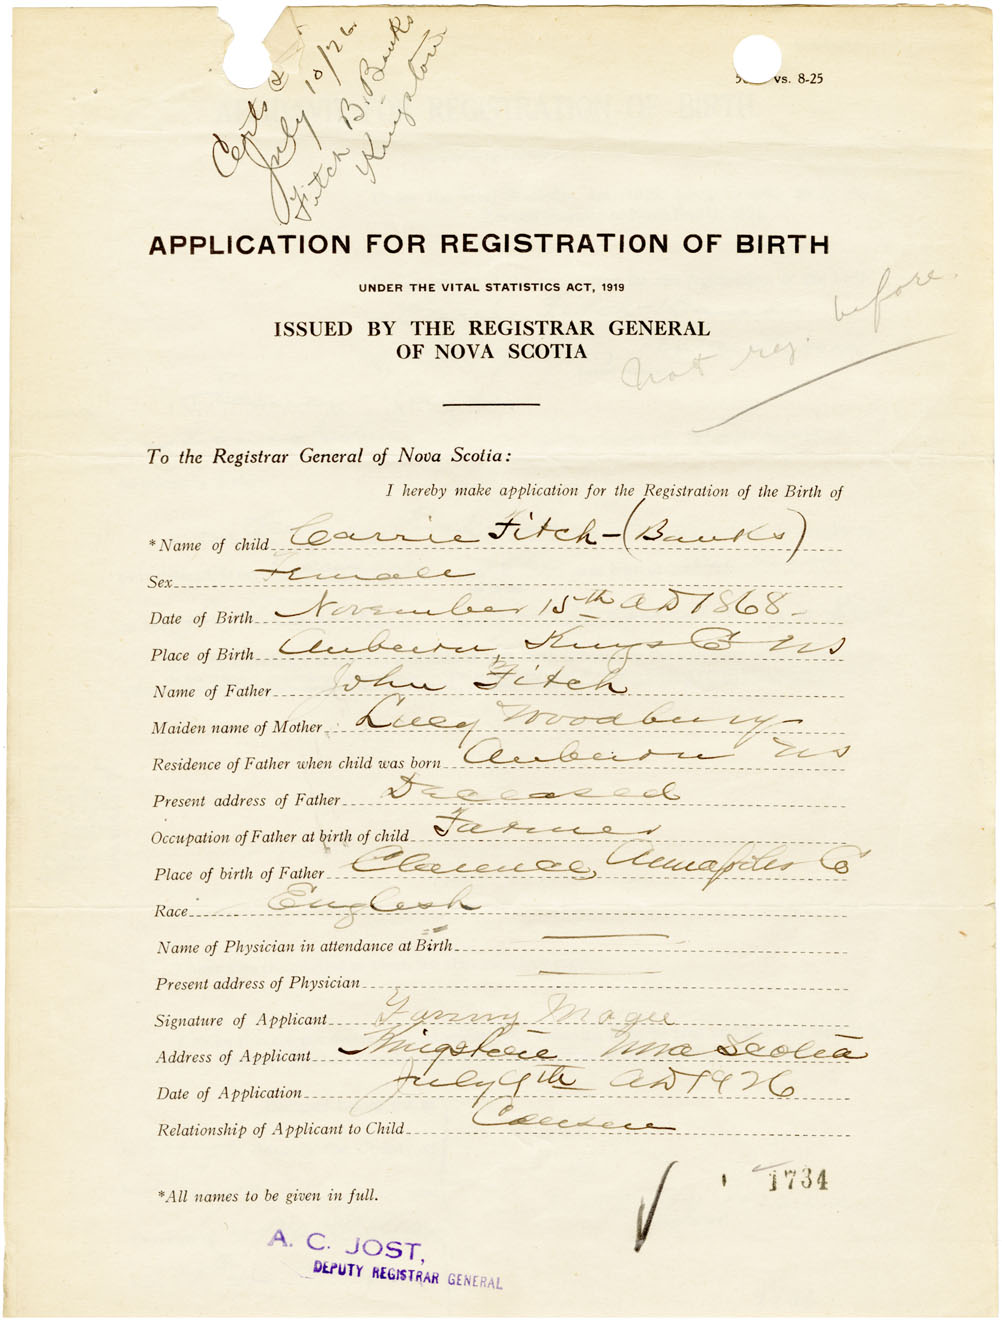 Certs
July 10/26
Fitch B. Banks
Kingston
vs. 8-25
APPLICATION FOR REGISTRATION OF BIRTH
UNDER THE VITAL STATISTICS ACT, 1919
ISSUED BY THE REGISTRAR GENERAL
OF NOVA SCOTIA
not reg. before.
To the Registrar General of Nova Scotia:
I hereby make application for the Registration of the Birth of
*Name of child Carrie Fitch-(Banks)
Sex Female
Date of Birth November 15th AD 1868
Place of Birth Auburn, Kings Co NS
Name of Father John Fitch
Maiden name of Mother Lucy Woodbury
Residence of Father when child was born Auburn NS
Present address of Father Deceased
Occupation of Father at birth of child Farmer
Place of birth of Father Clarence, Annapolis Co
Race English
Name of Physician in attendance at Birth
Present address of Physician
Signature of Applicant Fanny Magee
Address of Applicant Kingston Nova Scotia
Date of Application July 9th AD 1926
Relationship of Applicant to Child Cousin
1734
*All names to be given in full.
A. C. JOST,
DEPUTY REGISTRAR GENERAL